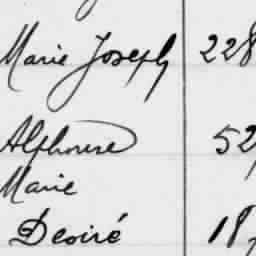 Marie Joseph 228
Alphonse 52
Marie
Desiré 18